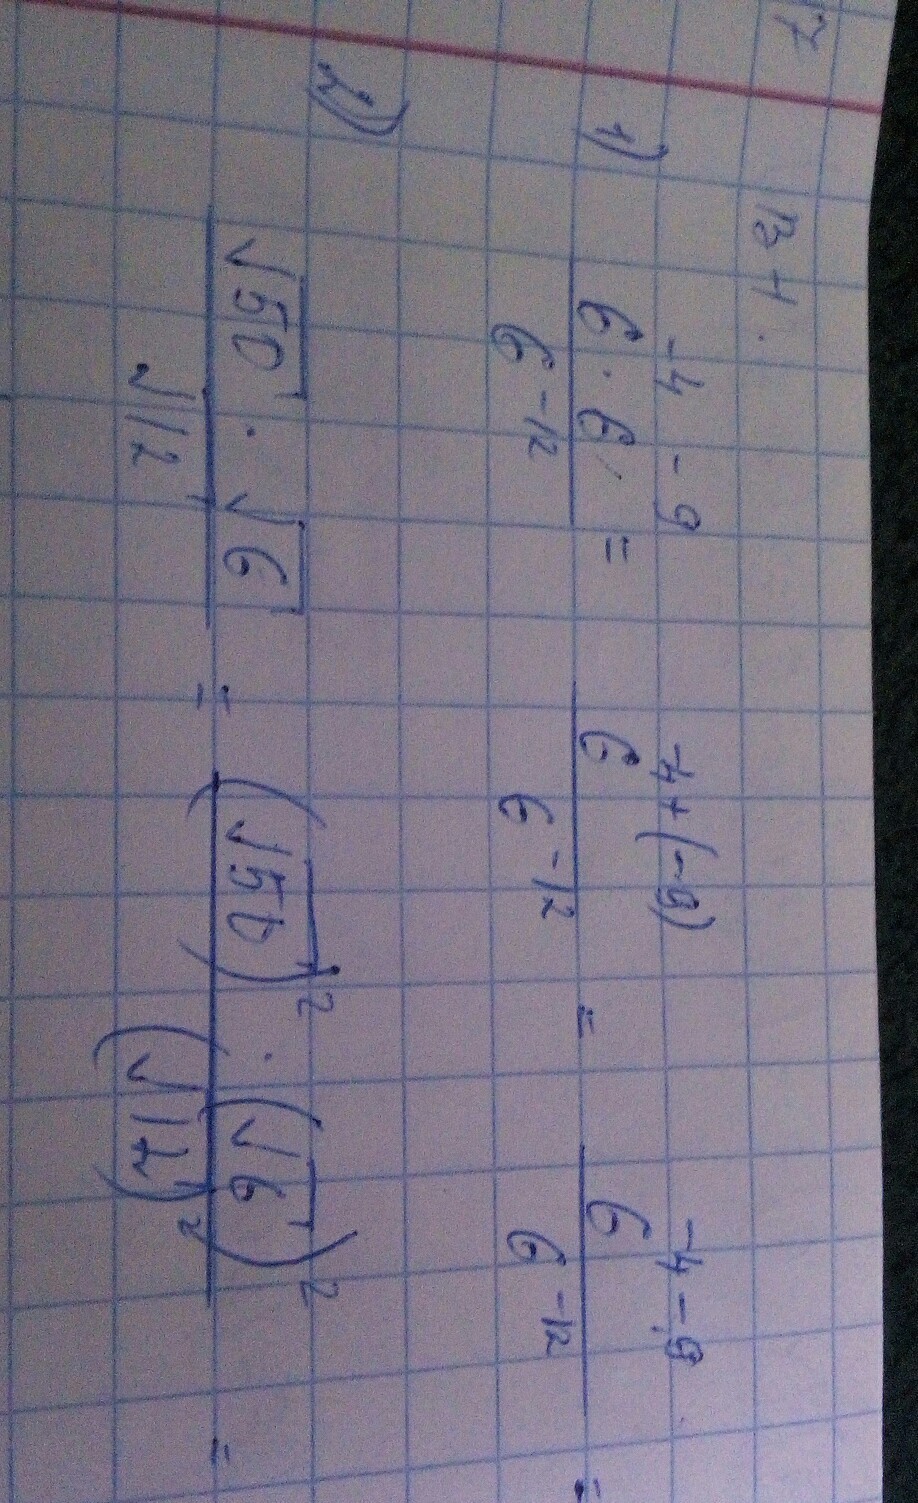 7
В-1.
1) \frac{6^{-4} · 6^{-9}}{6^{-12}} = \frac{6^{-4+(-9)}}{6^{-12}} = \frac{6^{-4-9}}{6^{-12}} =
2) \frac{√50 · √6}{√12} = \frac{(√50)^2 · (√6)^2}{(√12)^2} =